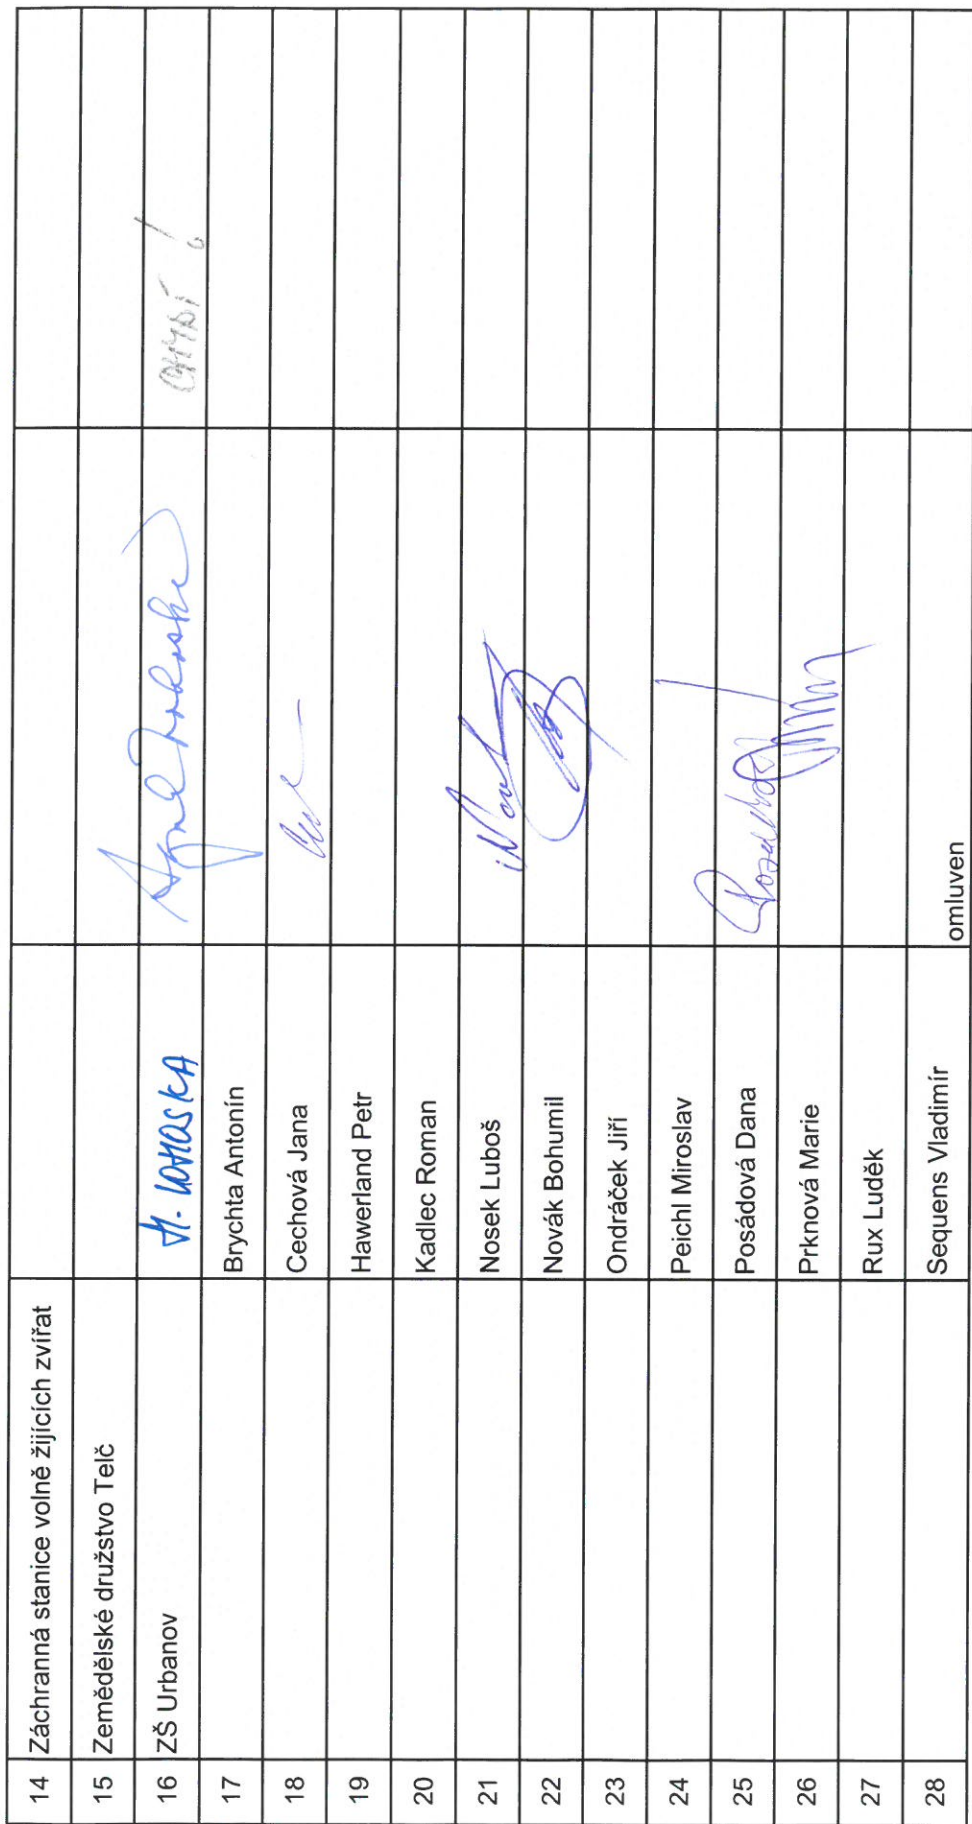 14 Záchranná stanice volně žijících zvířat
15 Zemědělské družstvo Telč
16 ZŠ Urbanov
17 Brychta Antonín
18 Cechová Jana
19 Hawerland Petr
20 Kadlec Roman
21 Nosek Luboš
22 Novák Bohumil
23 Ondráček Jiří
24 Peichl Miroslav
25 Posádová Dana
26 Prknová Marie
27 Rux Luděk
28 Sequens Vladimír omluven